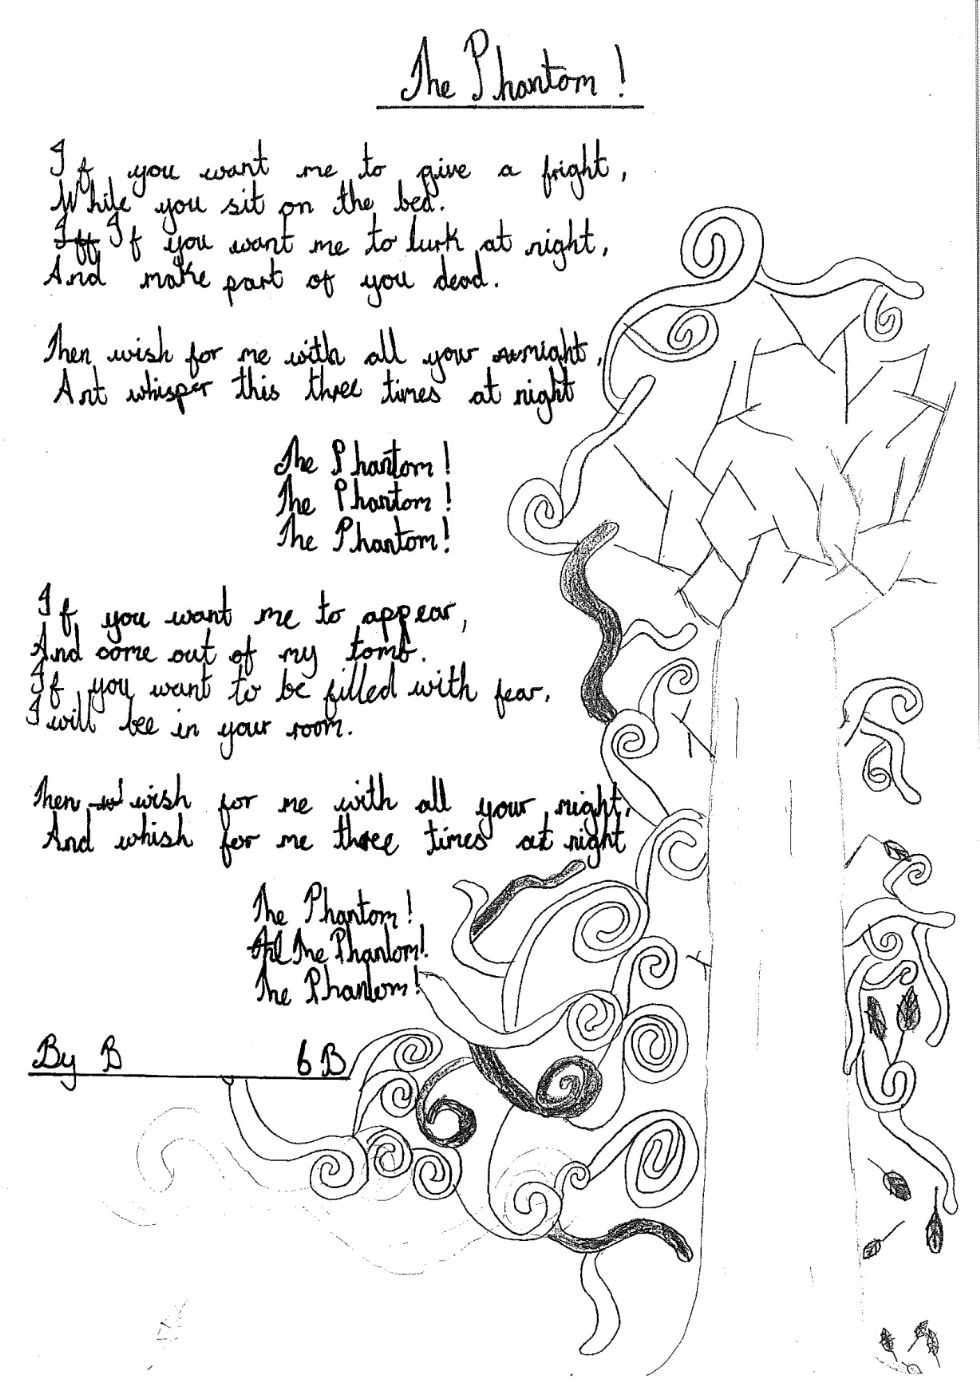 The Phantom!
If you want me to give a fright,
While you sit on the bed.
Iff If you want me to lurk at night,
And make part of you dead.
Then wish for me with all your might,
Ant whisper this three times at night
The Phantom!
The Phantom!
The Phantom!
If you want me to appear,
And come out of my tomb.
If you want to be filled with fear,
I will bee in your room.
Then wish for me with all your night,
And whish for me three times at night
The Phantom!
The Phantom!
The Phantom!
By B 6B